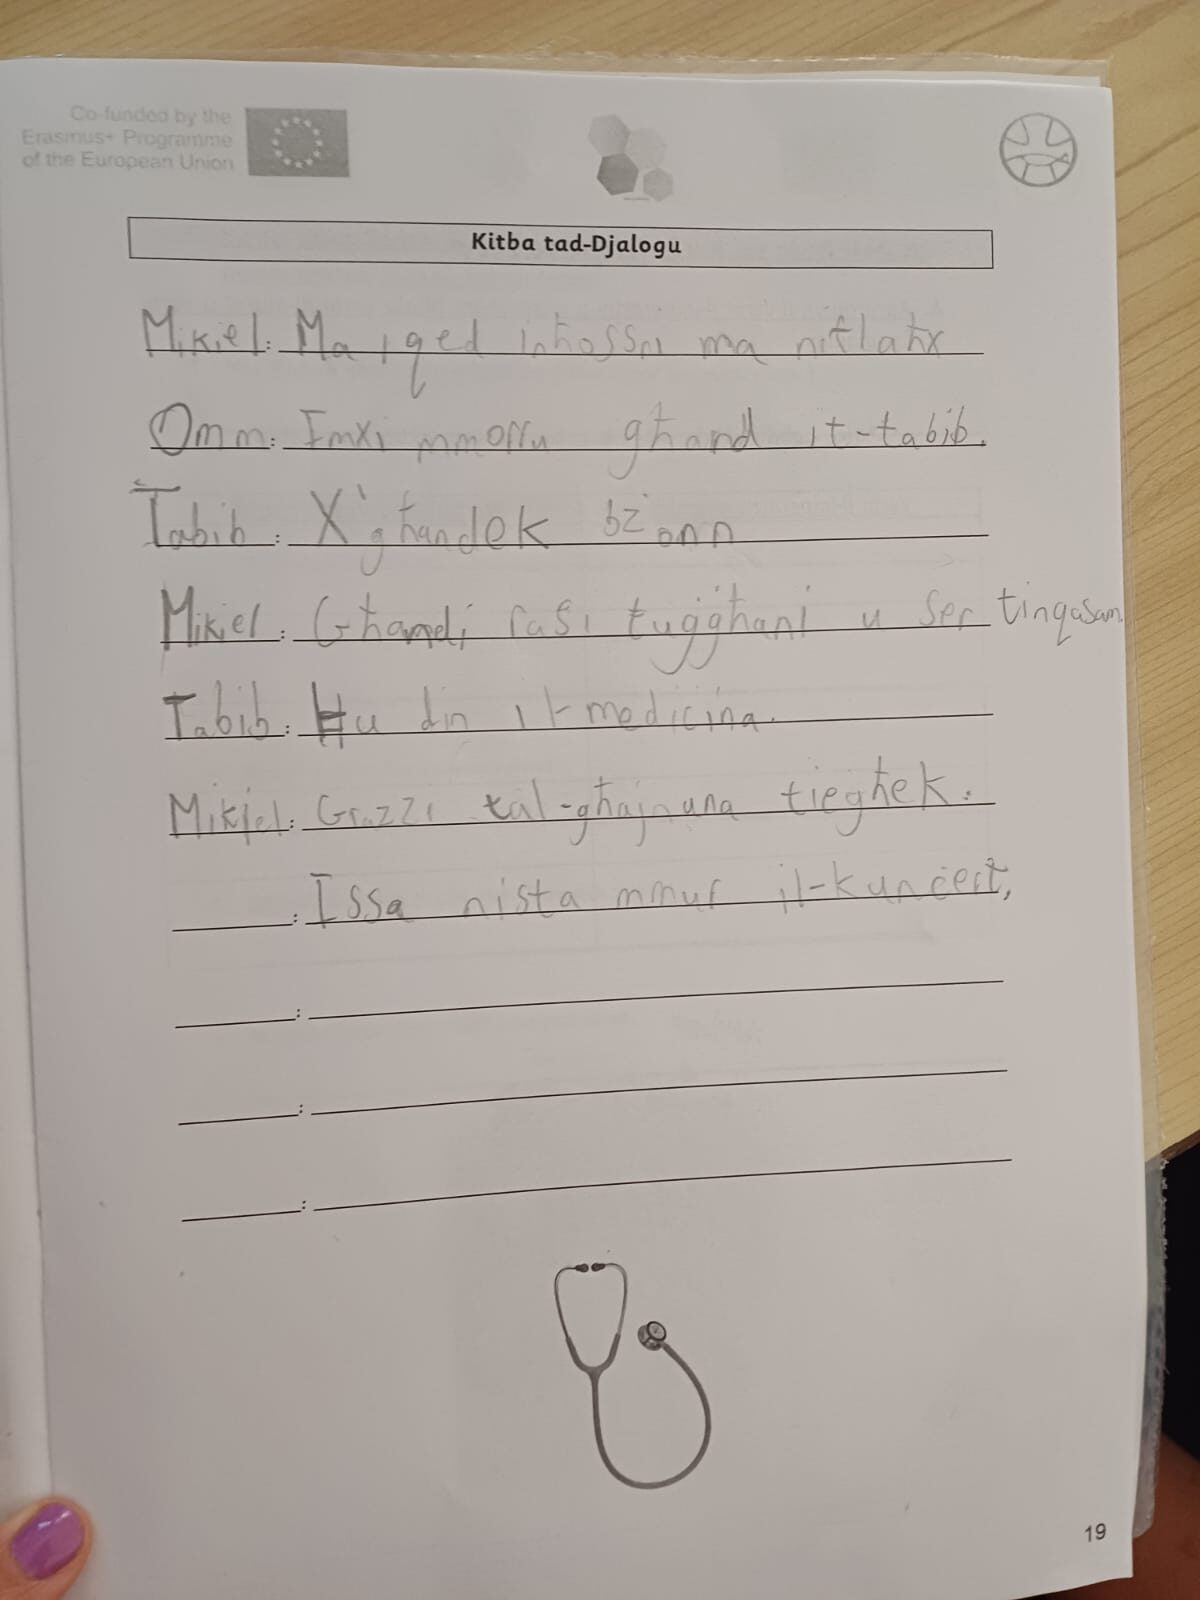 Co-funded by the
Erasmus+ Programme
of the European Union
Kitba tad-Djalogu
Mikiel: Ma rqed inħossni ma niflaħx
Omm: Imxi mmorru għand it-tabib.
Tabib: X'għandek bżonn
Mikiel: Għandi rasi tuġgħani u ser tinqasam
Tabib: Ħu din il-mediċina.
Mikiel: Grazzi tal-għajnuna tiegħek.
: Issa nista mmur il-kunċert,
:
:
:
19